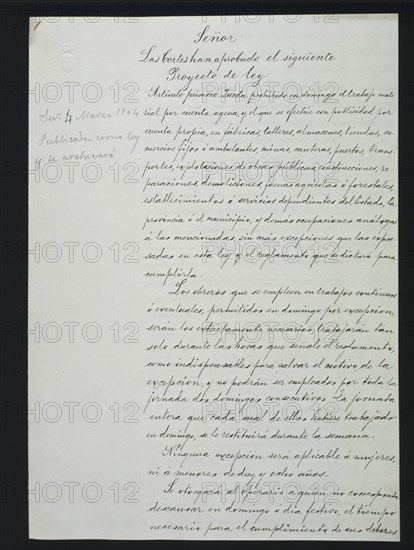 Señor
Las Cortes han aprobado el siguiente
Proyecto de ley
Artículo primero. Queda prohibido en domingo el trabajo mate-
rial por cuenta agena, y el que se efectúe con publicidad por
cuenta propia, en fábricas, talleres, almacenes, tiendas, co-
mercios fijos ó ambulantes, minas, canteras, puertos, trans-
portes, explotaciones de obras públicas, construcciones, re-
paraciones, demoliciones, faenas agrícolas ó forestales,
establecimientos ó servicios dependientes del Estado, la
provincia ó el municipio, y demás ocupaciones análogas
á las mencionadas, sin más excepciones que las expre-
sadas en esta ley y el reglamento que se dictará para
cumplirla.
Los obreros que se empleen en trabajos continuos
ó eventuales, permitidos en domingo por excepcion
serán los estrictamente necesarios, trabajarán tan
solo durante las horas que señale el reglamento,
como indispensables para salvar el motivo de la
excepcion, y no podrán ser empleados por toda la
jornada dos domingos consecutivos. La jornada
entera que cada cual de ellos hubiere trabajado
en domingo, se le restituirá durante la semana.
Ninguna excepción será aplicable á mujeres,
ni á menores de diez y ocho años.
Se otorgará al operario á quien no corresponda
descansar en domingo ó dia festivo, el tiempo
necesario para el cumplimiento de sus deberes
4 Marzo 1904
Publicada como ley
y se archivará
PHOTO 12